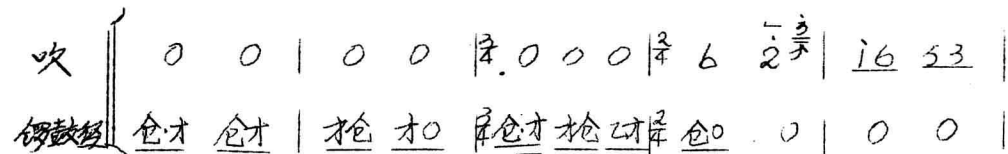 吹 0 0 | 0 0 | 3/4 0 0 0 | 2/4 6 2̇ | i̇6 53 |
锣鼓经 仓·才 仓才 | 才仓 才0 | 3/4 仓·才 才仓 乙才 | 2/4 仓0 0 | 0 0 |